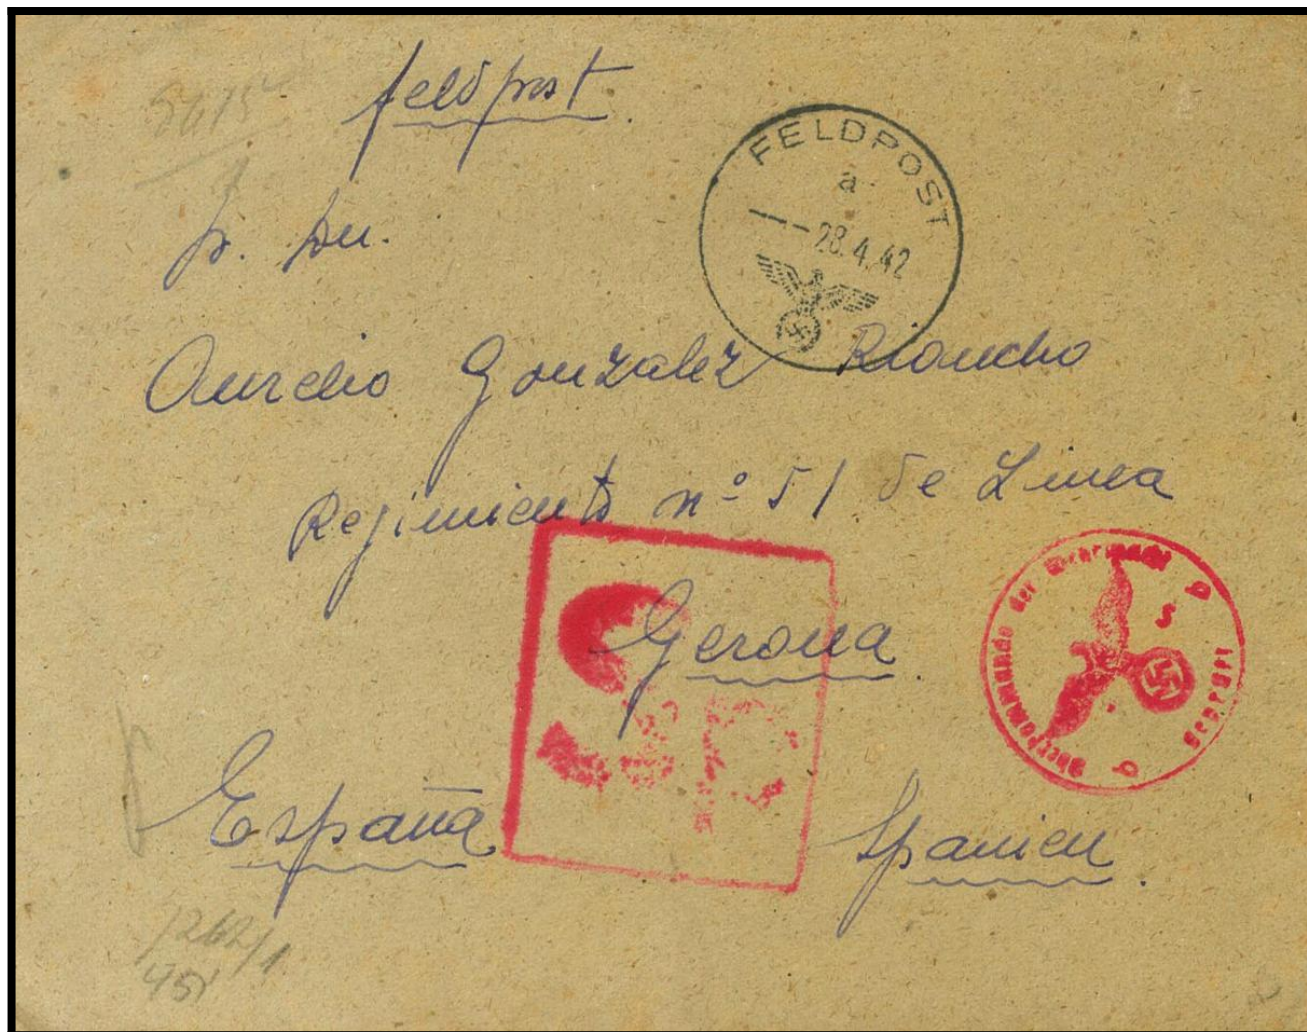 feldpost
FELDPOST
a
28.4.42
Aurelio Gonzalez Riancho
Regimiento nº 51 de Linea
Gerona
España
Spanien
Oberkommando der Wehrmacht
geprüft
b
1262/1